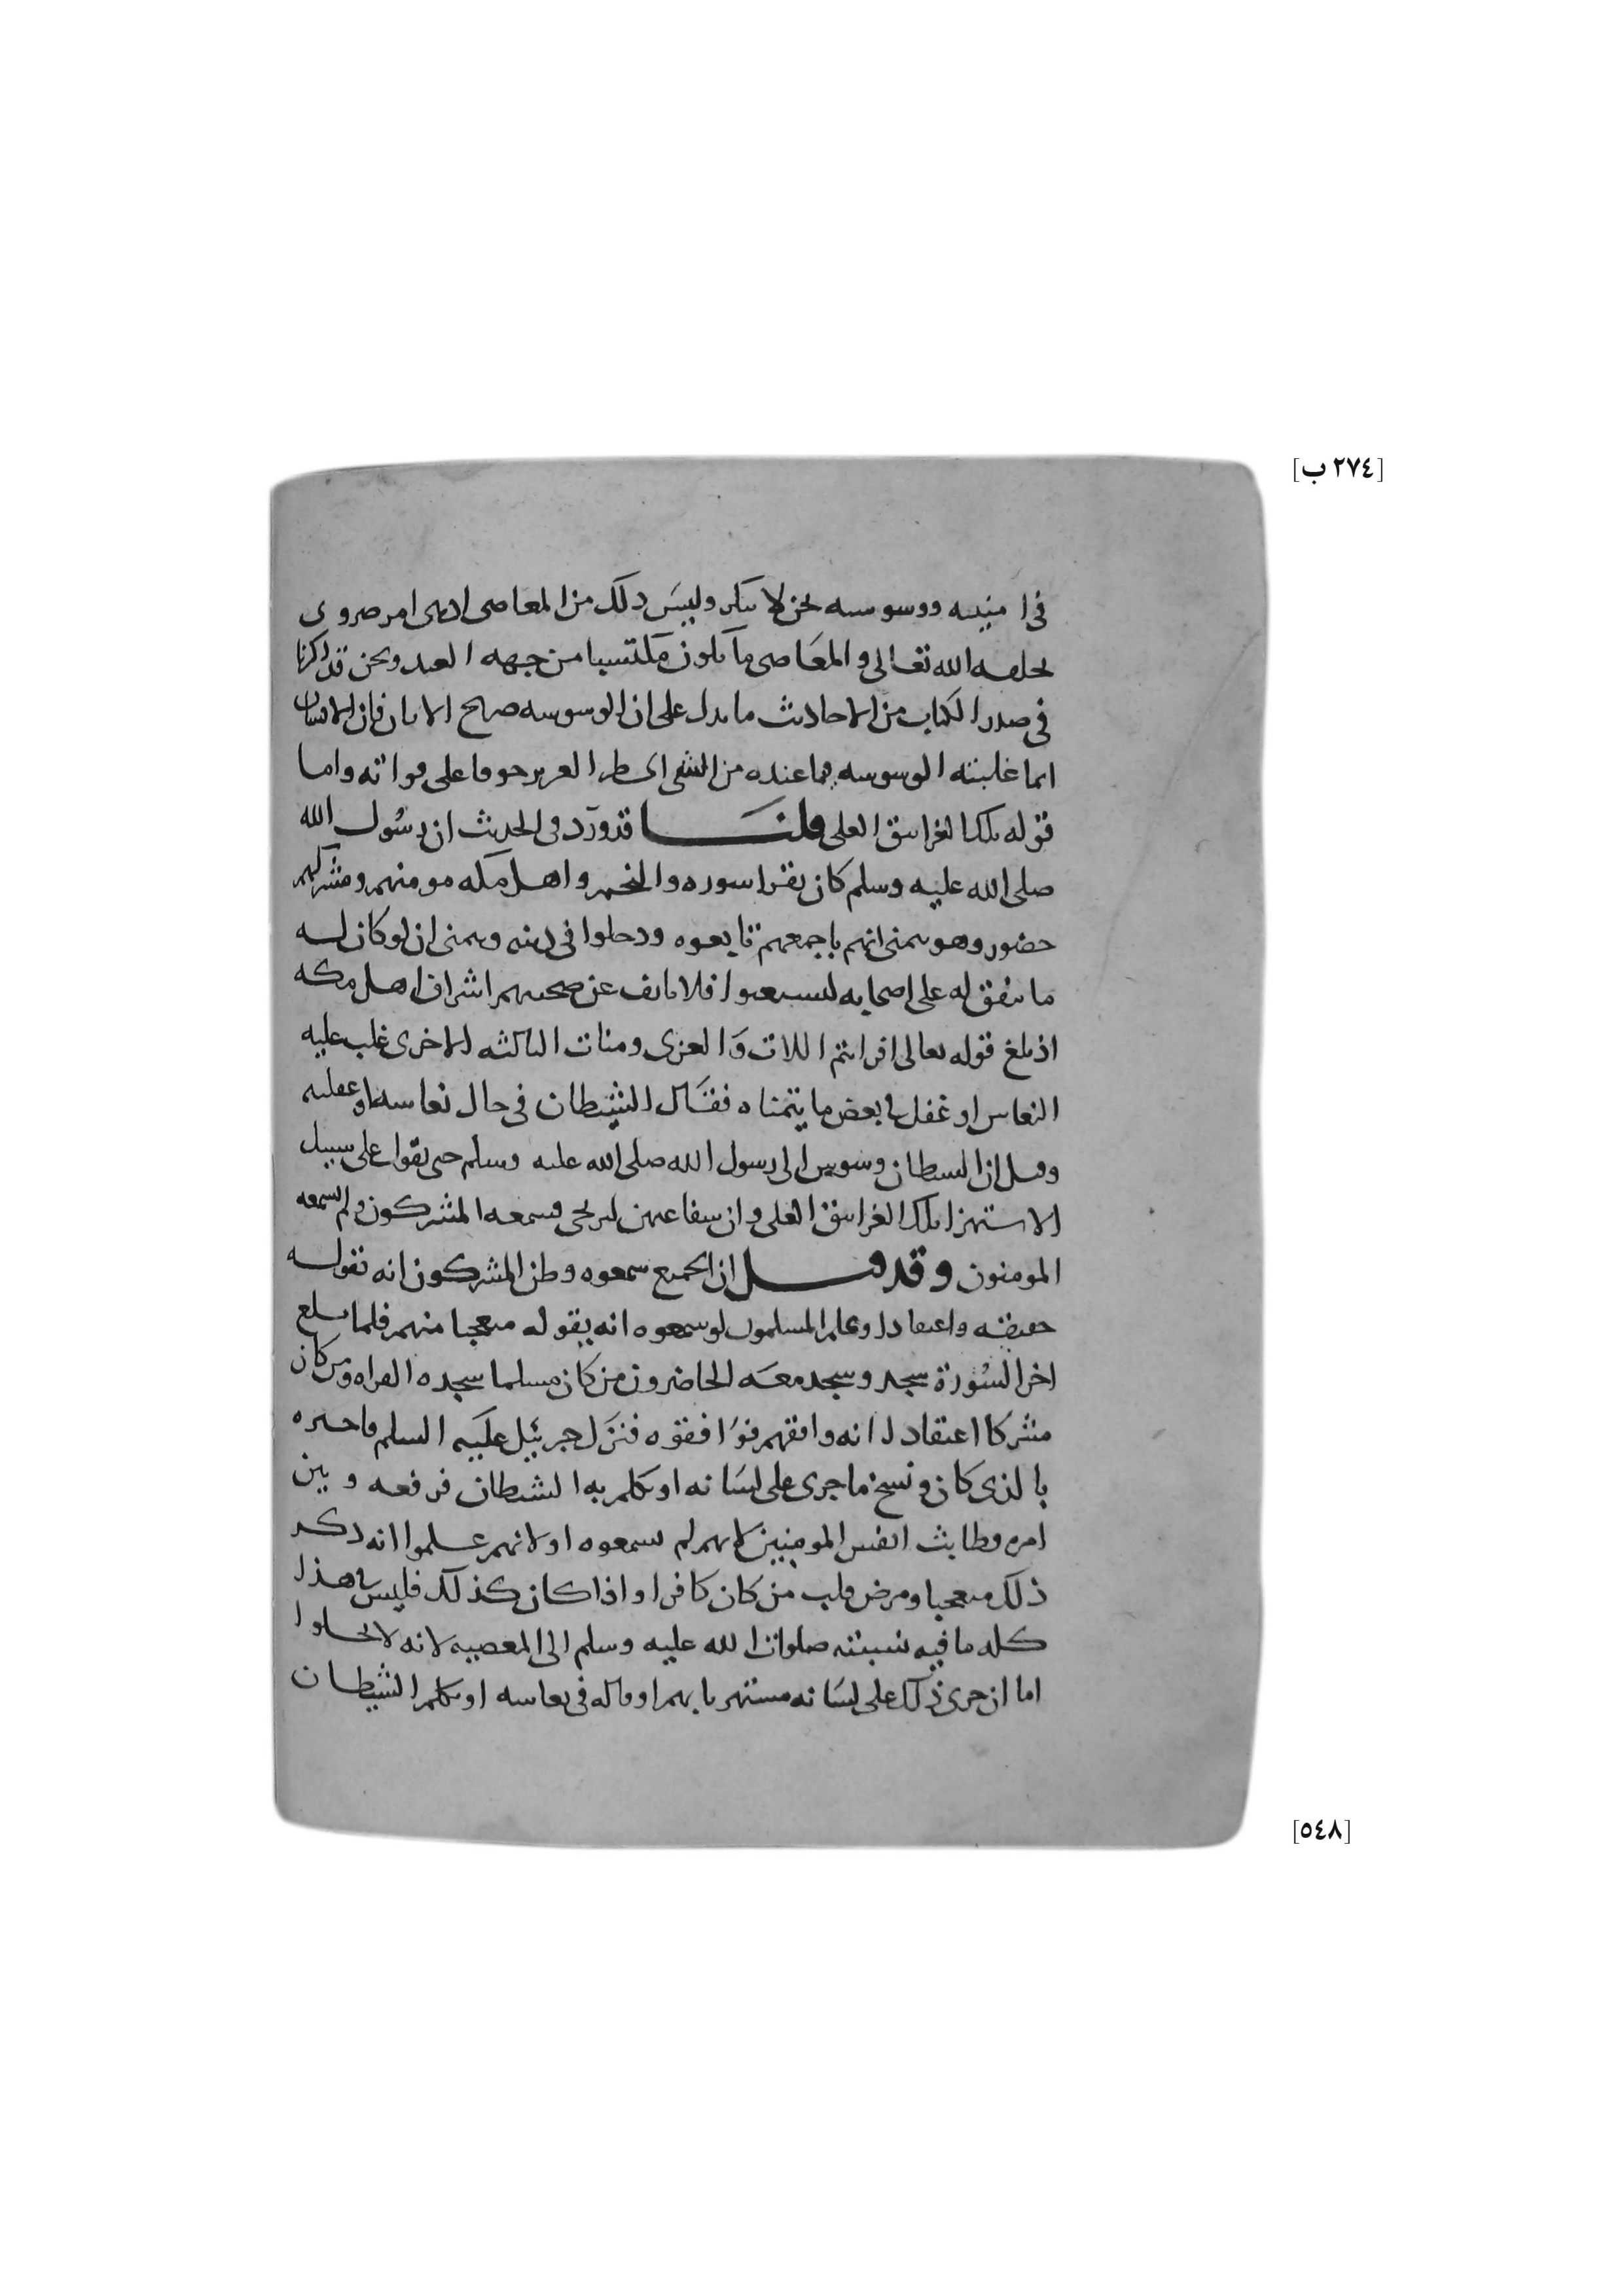 [٢٧٤ ب]
في امنيته ووسوسه نحن لا ننكر وليس ذلك من المعاصي اذ هي امر ضروري
يخلقه الله تعالى والمعاصي ما يكون مكتسبا من جهه العبد ونحن قد ذكرنا
في صدر الكتاب من الاحاديث ما يدل على ان الوسوسه صريح الايمان فان الانسان
انما غلبته الوسوسه مما عنده من الشي الخطر العزيز خوفا على فواته واما
قوله تلك الغرانيق العلى قلنا قد ورد في الحديث ان رسول الله
صلى الله عليه وسلم كان يقرا سوره والنجم واهل مكه مومنهم ومشركهم
حضور وهو يتمنى انهم باجمعهم تابعوه ودخلوا في دينه ويتمنى ان لو كان له
ما ينفق له على اصحابه ليستغنوا فلا يانف عن صحبتهم اشراف اهل مكه
اذ بلغ قوله تعالى افرايتم اللات والعزى ومنات الثالثه الاخرى غلب عليه
النعاس او غفل في بعض ما يتمناه فقال الشيطان في حال نعاسه او غفلته
وقيل ان الشيطان وسوس الى رسول الله صلى الله عليه وسلم حتى يقوا على سبيل
الاستهزا تلك الغرانيق العلى وان شفاعتهن لترتجى فسمعه المشركون ولم يسمعه
المومنون وقد قيل ان الجميع سمعوه وظن المشركون انه تقوله
حقيقه واعتقادا وعلم المسلمون لو سمعوه انه يقوله متعجبا منهم فلما بلغ
اخر السورة سجد وسجد معه الحاضرون من كان مسلما سجده القراه ومن كان
مشركا اعتقادا انه وافقهم فوافقوه فنزل جبرئيل عليه السلم فاخبره
بالذي كان ونسخ ما جرى على لسانه او تكلم به الشيطان فرفعه وبين
امره وطابت انفس المومنين لانهم لم يسمعوه او لانهم علموا انه ذكر
ذلك متعجبا ومرض قلب من كان كافرا واذا كان كذلك فليس في هذا
كله ما فيه نسبته صلوات الله عليه وسلم الى المعصيه لانه لا يخلوا
اما ان جرى ذلك على لسانه مستهزيا بهم او قاله في نعاسه او تكلم الشيطان
[٥٤٨]